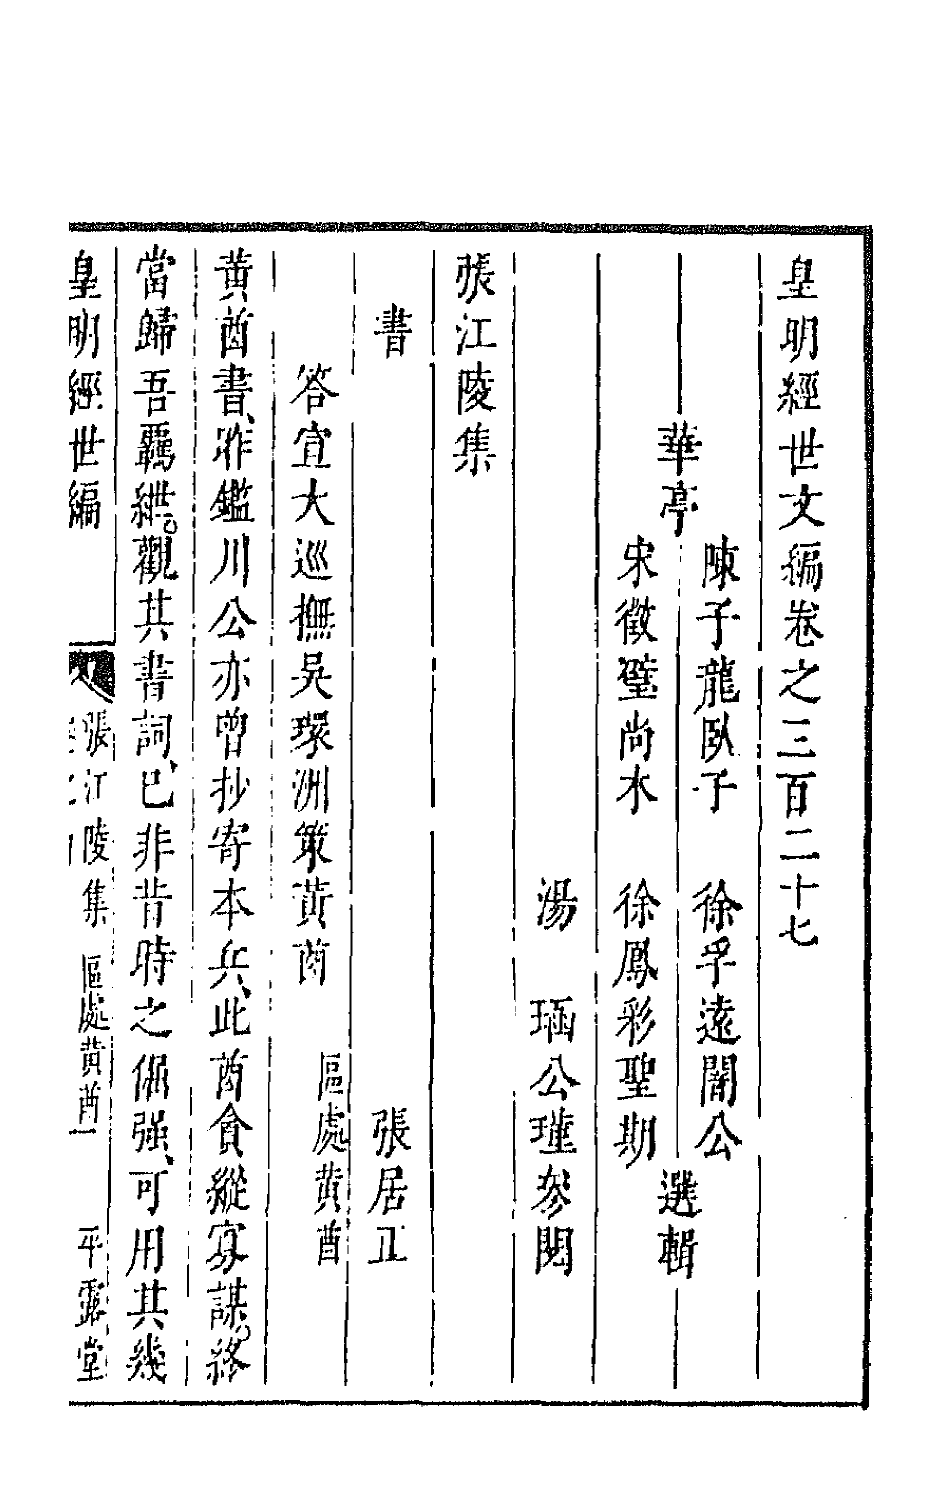 皇明經世文編卷之三百二十七
華亭
陳子龍臥子 徐孚遠闇公
宋徵璧尚木 徐鳳彩聖期
選輯
湯 㻏公瑾叅閱
張江陵集
書 張居正
答宣大巡撫吳環洲策黃酋 區處黃酋
黃酋書、昨鑑川公亦曾抄寄本兵、此酋貪縱寡謀。終
當歸吾羈紲。觀其書詞、已非昔時之倔强、可用其幾
皇明經世編
張江陵集 區處黃酋 一 平露堂